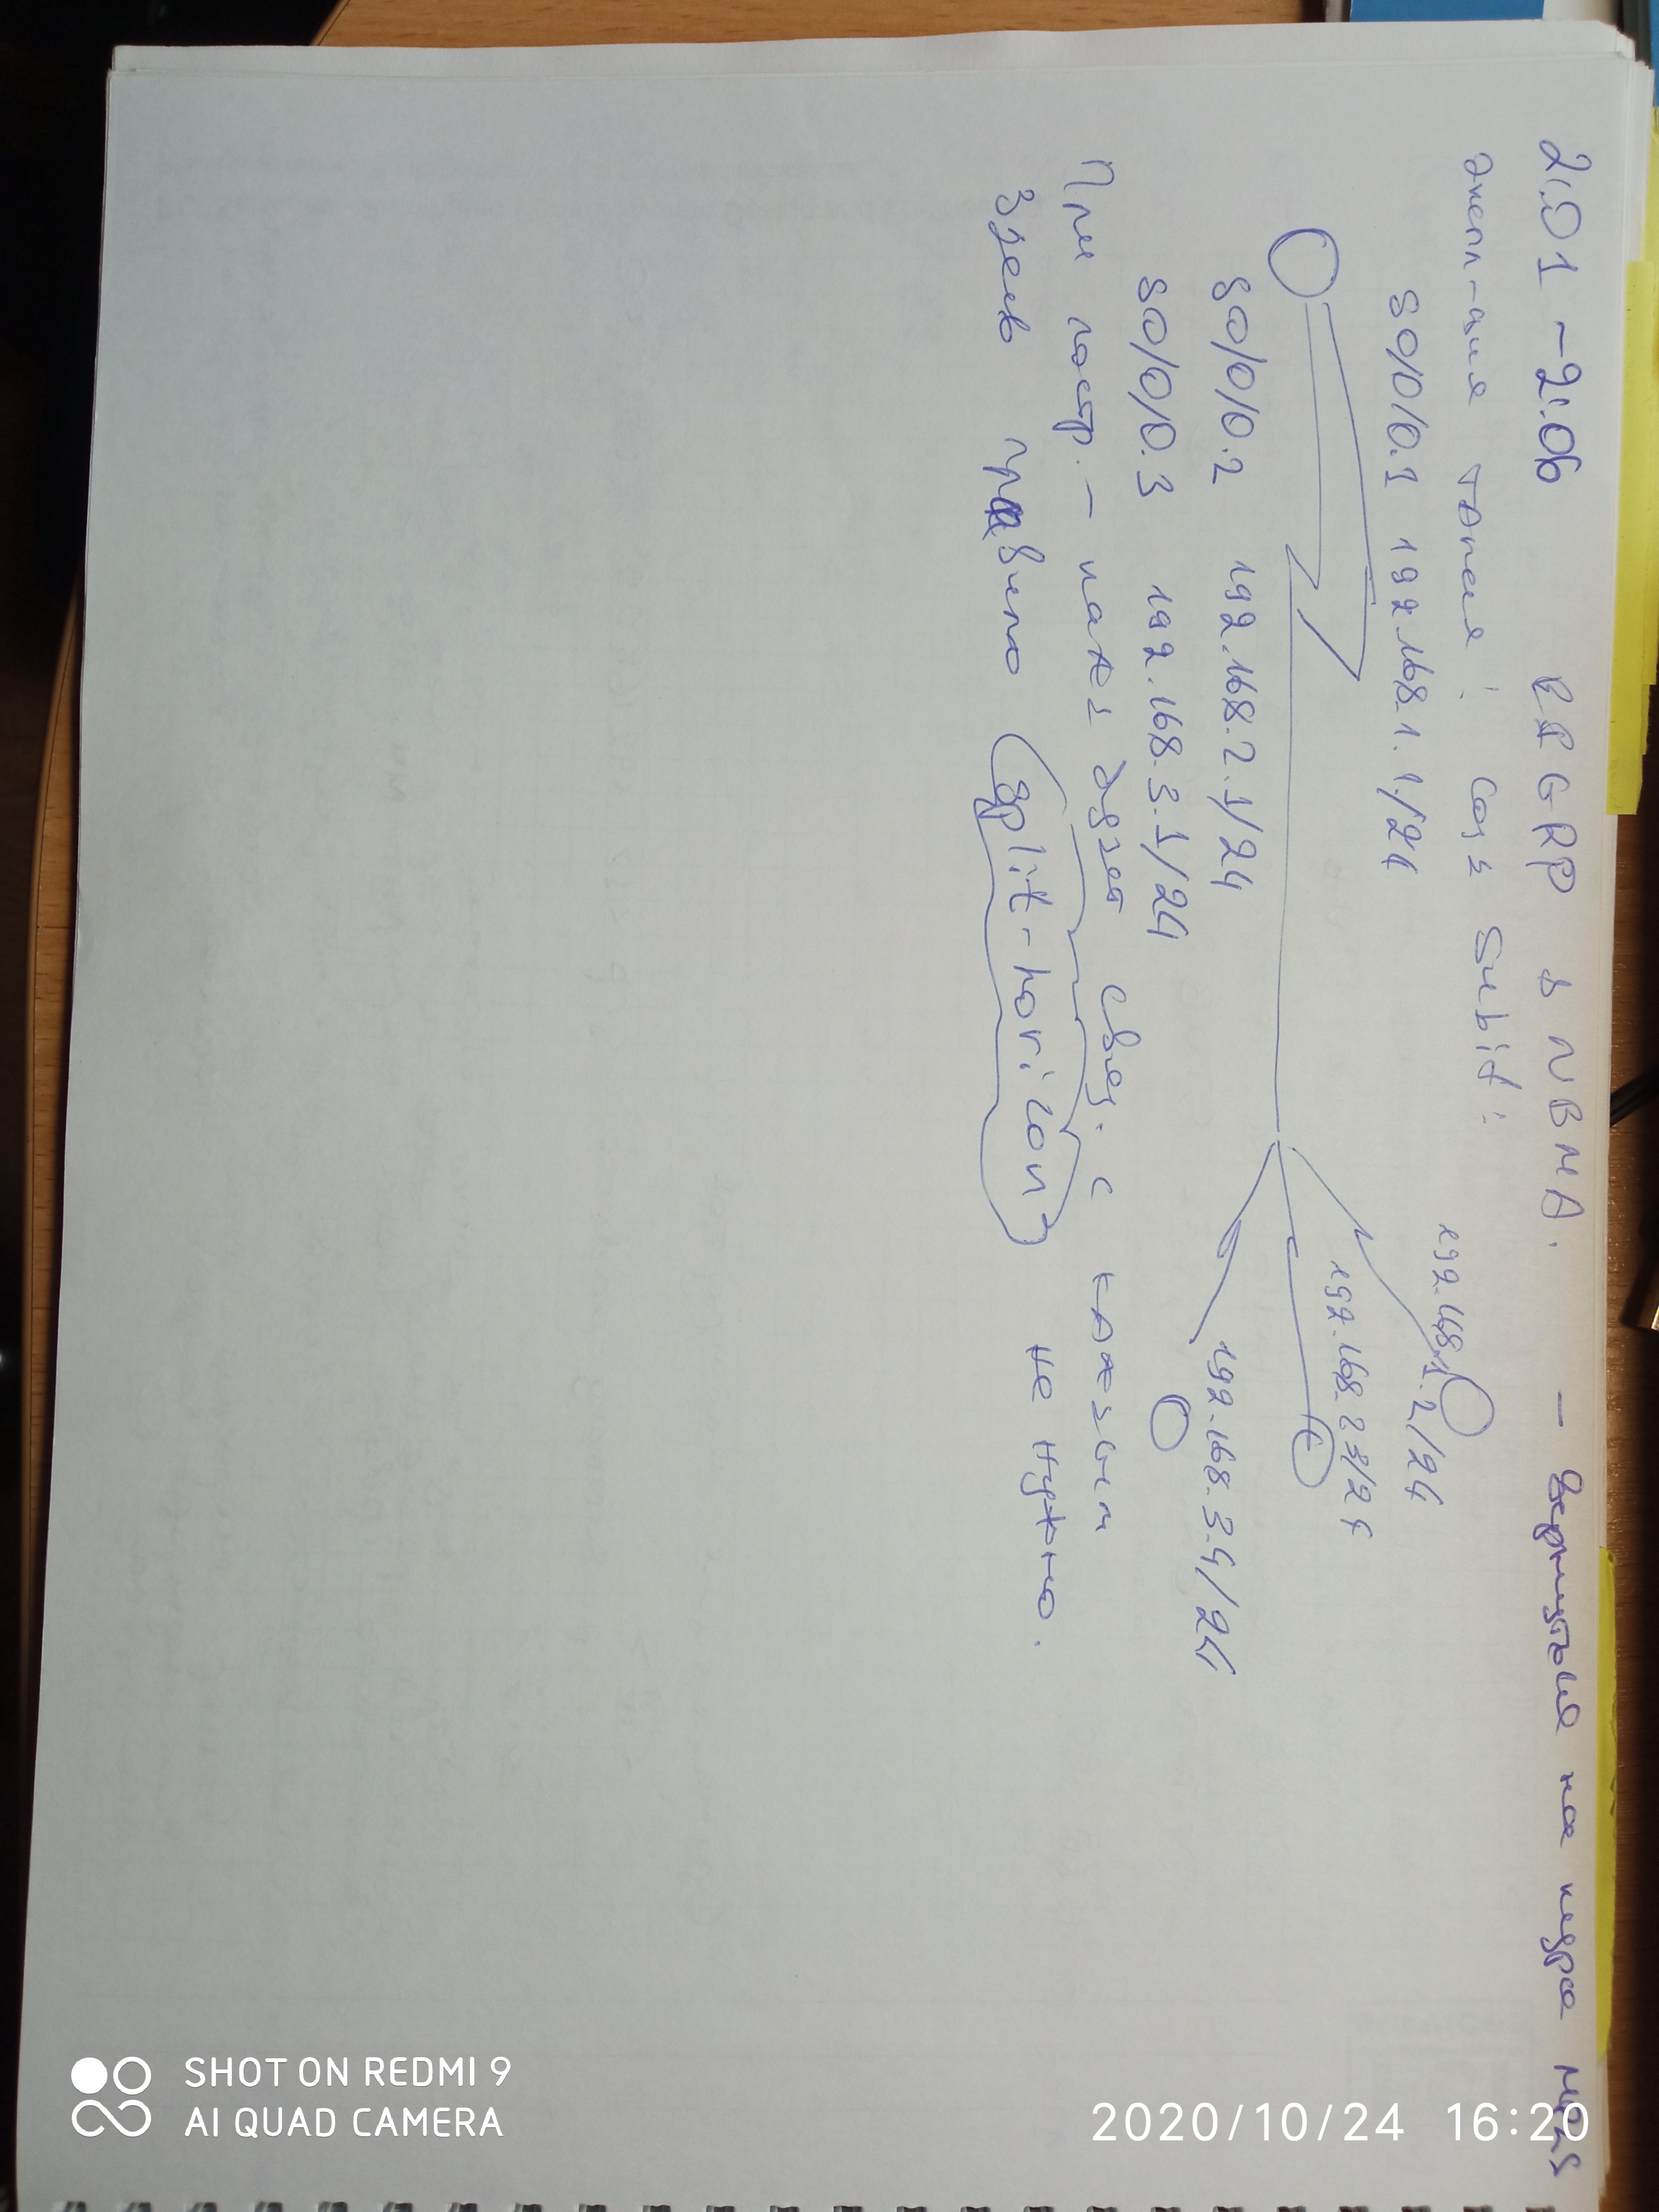 2:01 - 2:06 EIGRP в NBMA. - Вернуться на курсе MPLS
Экспл-ция такая: созд Subif:
S0/0/0.1 192.168.1.1/24
192.168.1.2/24
192.168.2.3/24
S0/0/0.2 192.168.2.1/24
192.168.3.4/24
S0/0/0.3 192.168.3.1/24
При будет связ. с каждым
Здесь правило split-horizon не нужно.
2020/10/24 16:20
SHOT ON REDMI 9
AI QUAD CAMERA